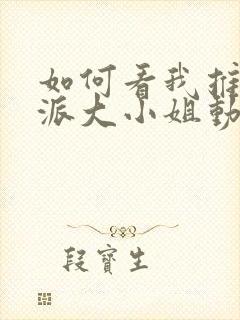 如何看我推
派大小姐動
段寶生